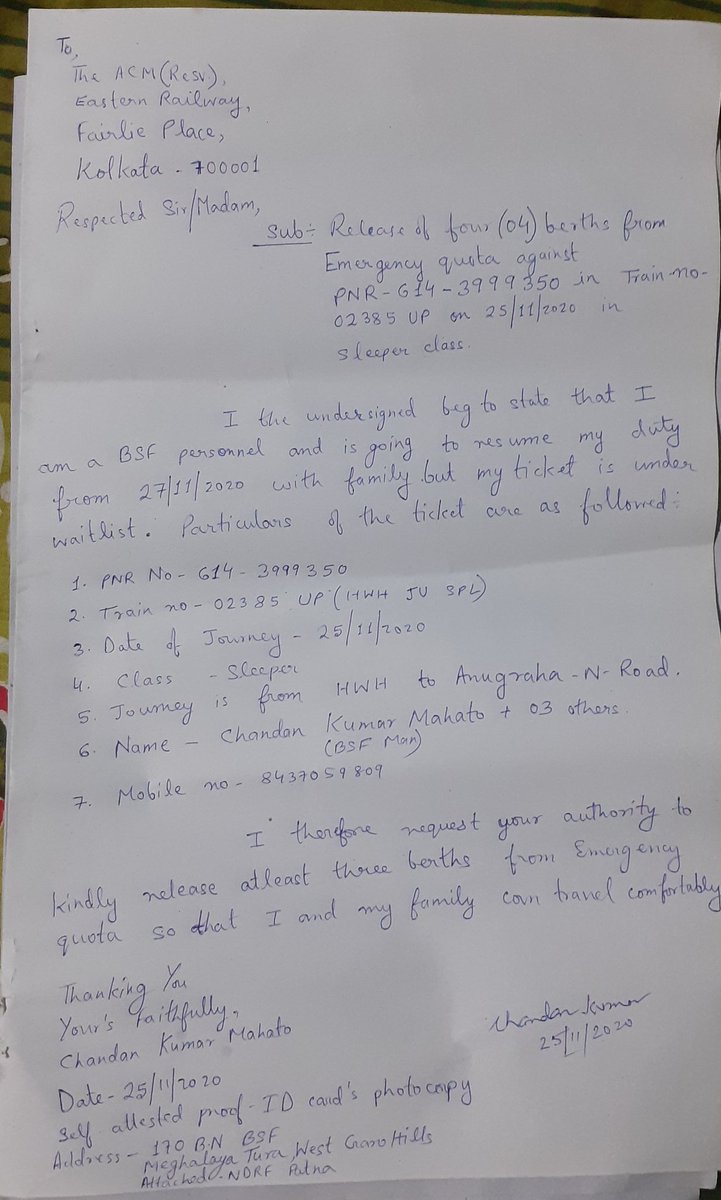 To,
The ACM (Resv.),
Eastern Railway,
Fairlie Place,
Kolkata - 700001
Respected Sir/Madam,
Sub:- Release of four (04) berths from
Emergency quota against
PNR - 614 - 3999350 in Train-no-
02385 UP on 25/11/2020 in
Sleeper class.
I the undersigned beg to state that I
am a BSF personnel and is going to resume my duty
from 27/11/2020 with family but my ticket is under
waitlist. Particulars of the ticket are as followed:-
1. PNR No - 614 - 3999350
2. Train no - 02385 UP (HWH JU SPL)
3. Date of Journey - 25/11/2020
4. Class - Sleeper
5. Journey is from HWH to Anugraha - N - Road.
6. Name - Chandan Kumar Mahato + 03 others.
(BSF Man)
7. Mobile no - 8437059809
I therefore request your authority to
kindly release atleast three berths from Emergency
quota so that I and my family can travel comfortably
Thanking You
Your's faithfully,
Chandan Kumar Mahato
Chandan Kumar
25/11/2020
Date - 25/11/2020
Self attested proof - ID card's photocopy
Address - 170 B.N BSF
Meghalaya Tura West Garo Hills
Attached - NDRF Patna